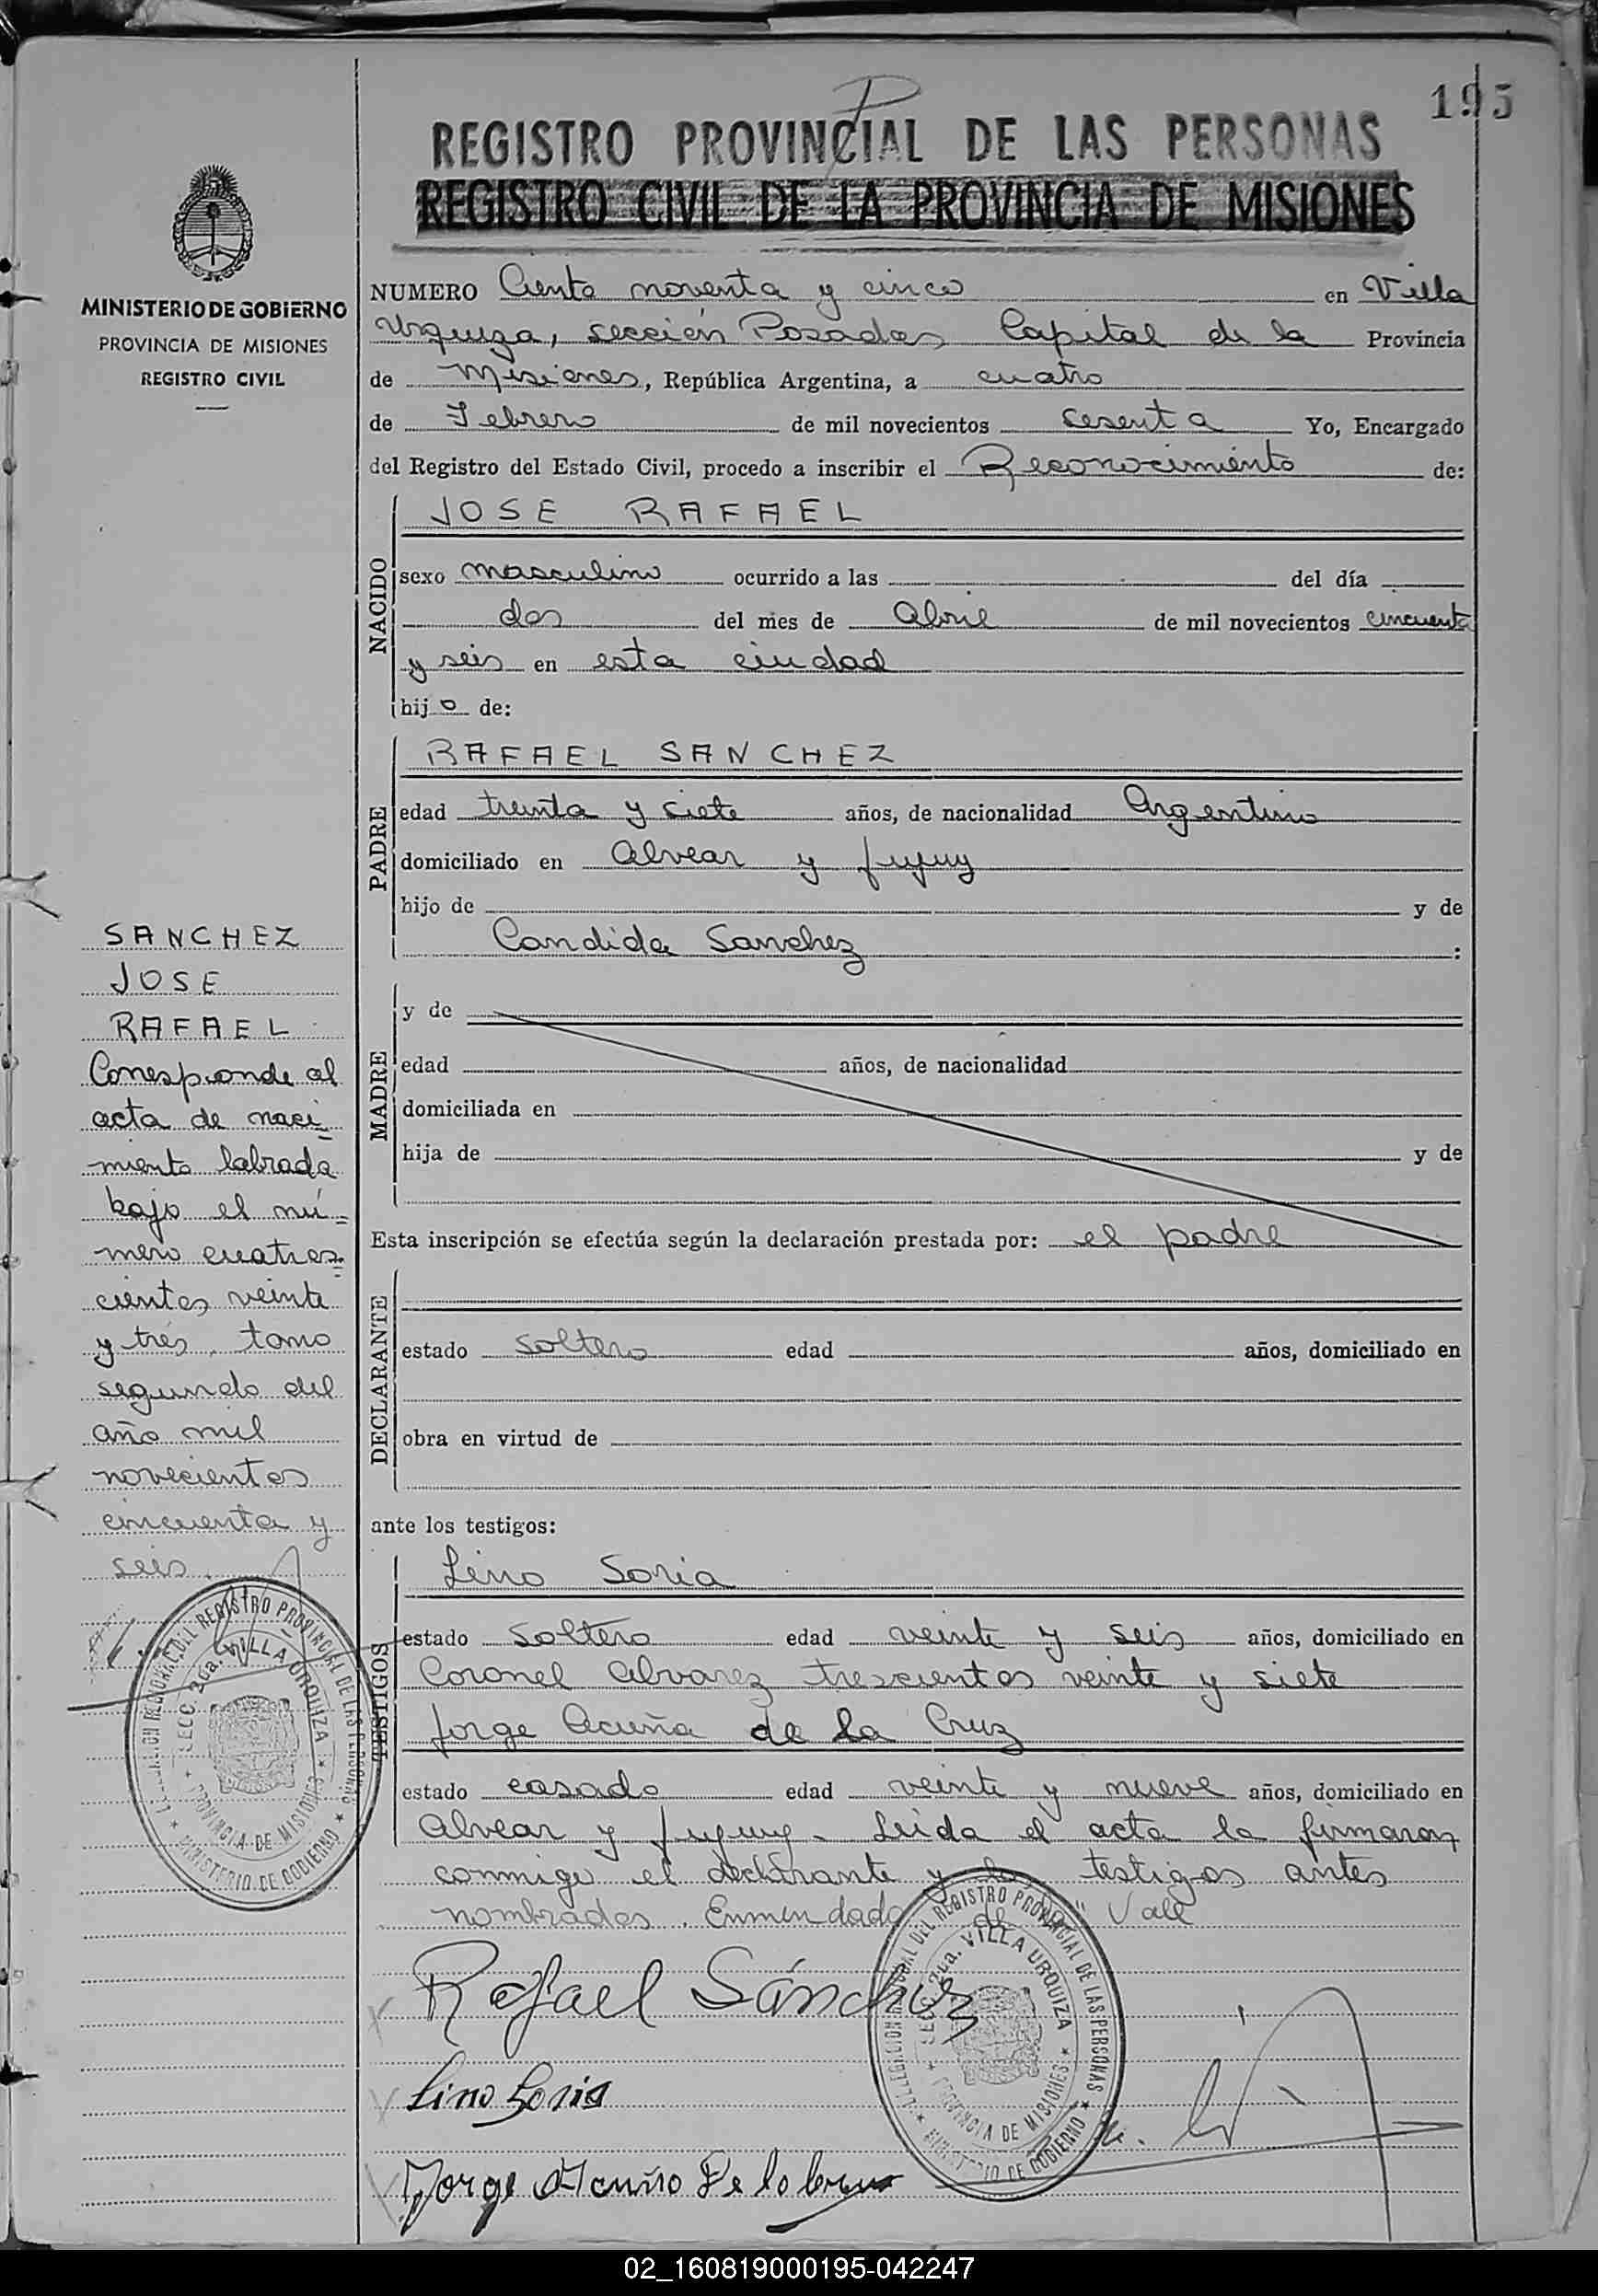 195
P
REGISTRO PROVINCIAL DE LAS PERSONAS
REGISTRO CIVIL DE LA PROVINCIA DE MISIONES
MINISTERIO DE GOBIERNO
PROVINCIA DE MISIONES
REGISTRO CIVIL
NUMERO Ciento noventa y cinco en Villa
Urquiza, sección Posadas Capital de la Provincia
de Misiones, República Argentina, a cuatro
de Febrero de mil novecientos sesenta Yo, Encargado
del Registro del Estado Civil, procedo a inscribir el Reconocimiento de:
NACIDO
JOSE RAFAEL
sexo masculino ocurrido a las del día
dos del mes de Abril de mil novecientos cincuenta
y seis en esta ciudad
hijo de:
PADRE
RAFAEL SANCHEZ
edad treinta y siete años, de nacionalidad Argentino
domiciliado en Alvear y Jujuy
hijo de y de
Candida Sanchez :
MADRE
y de
edad años, de nacionalidad
domiciliada en
hija de y de
Esta inscripción se efectúa según la declaración prestada por: el padre
DECLARANTE
estado soltero edad años, domiciliado en
obra en virtud de
ante los testigos:
TESTIGOS
Lino Soria
estado soltero edad veinte y seis años, domiciliado en
Coronel Alvarez trescientos veinte y siete
Jorge Acuña de la Cruz
estado casado edad veinte y nueve años, domiciliado en
Alvear y Jujuy. Leida el acta la firmaron
conmigo el declarante y los testigos antes
nombrados. Enmendado "de" Vale
Rafael Sánchez
Lino Soria
Jorge Acuña De la Cruz
SANCHEZ
JOSE
RAFAEL
Corresponde al
acta de naci-
miento labrada
bajo el nú-
mero cuatros-
cientos veinte
y tres, tomo
segundo del
año mil
novecientos
cincuenta y
seis.
DELEGACION REGIONAL DEL REGISTRO PROVINCIAL DE LAS PERSONAS
SECC. 2da. VILLA URQUIZA
PROVINCIA DE MISIONES
MINISTERIO DE GOBIERNO
DELEGACION REGIONAL DEL REGISTRO PROVINCIAL DE LAS PERSONAS
SECC. 2da. VILLA URQUIZA
PROVINCIA DE MISIONES
MINISTERIO DE GOBIERNO
02_160819000195-042247